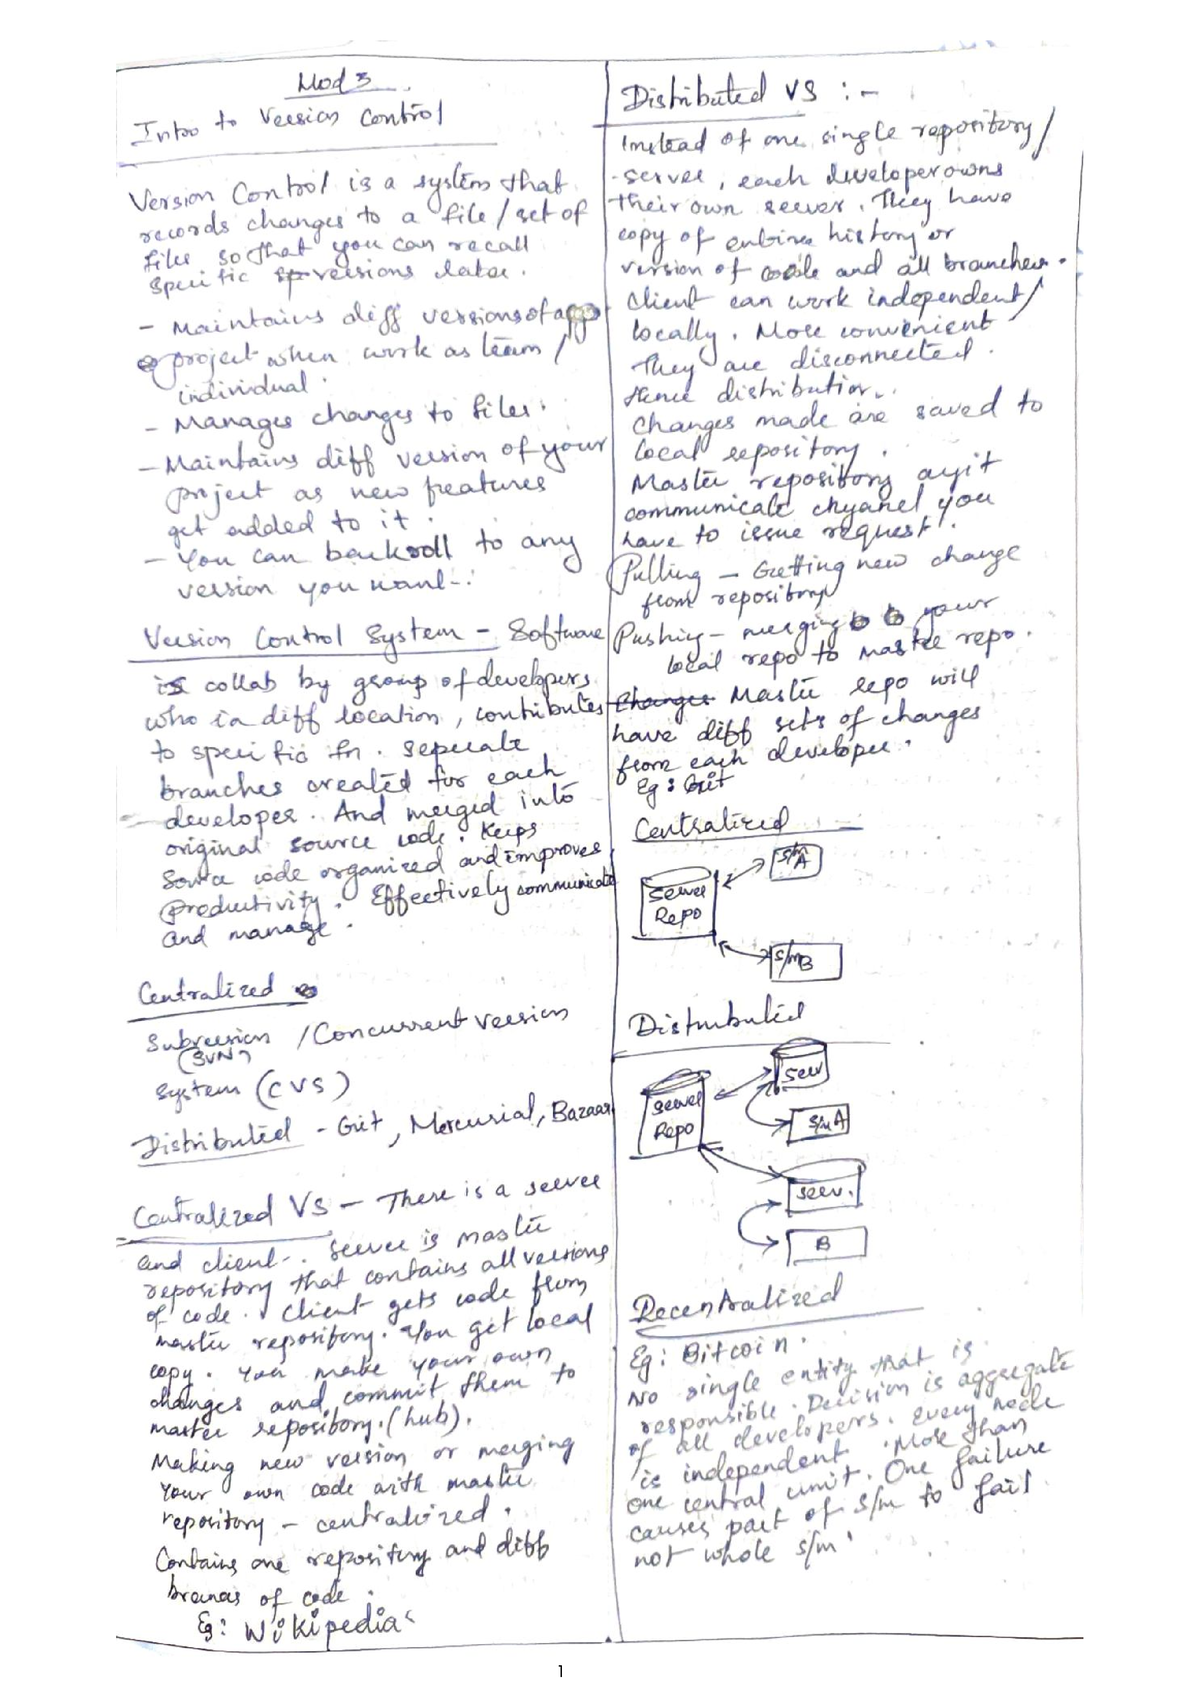 Mod 3
Intro to Version Control
Version Control is a system that
records changes to a file / set of
files so that you can recall
specific versions later.
- Maintains diff versions of app
project when work as team /
individual.
- Manages changes to files.
- Maintains diff version of your
project as new features
get added to it.
- You can backroll to any
version you want.
Version Control System - Software
is collab by group of developers
who in diff location, contributes
to specific fn. Seperate
branches created for each
developer. And merged into
original source code. Keeps
Source code organized and improves
productivity. Effectively communicate
and manage.
Centralized
Subversion / Concurrent Version
(SVN)
System (CVS)
Distributed - Git, Mercurial, Bazaar
Centralized VS - There is a server
and client. Server is master
repository that contains all versions
of code. Client gets code from
master repository. You get local
copy. You make your own
changes and commit them to
master repository. (hub).
Making new version or merging
your own code with master
repository - centralized.
Contains one repository and diff
of code.
Eg: Wikipedia
Distributed VS :-
Instead of one single repository /
server, each developer owns
their own server. They have
copy of entire history or
version of code and all branches.
Client can work independent /
locally. More convenient
They are disconnected.
Hence distribution.
Changes made are saved to
local repository.
Master repository
communicate you
have to issue request.
Pulling - Getting new change
from repository
Pushing - merging your
local repo to master repo.
Changes Master repo will
have diff sets of changes
from each developer.
Eg: Git
Centralized
Server
Repo
S/m A
S/m B
Distributed
Server
Repo
Serv
S/m A
Serv.
B
Decentralized
Eg: Bitcoin.
No single entity that is
responsible. Decision is aggregate
of all developers. Every node
is independent. More than
one central unit. One failure
causes part of s/m to fail
not whole s/m.
1